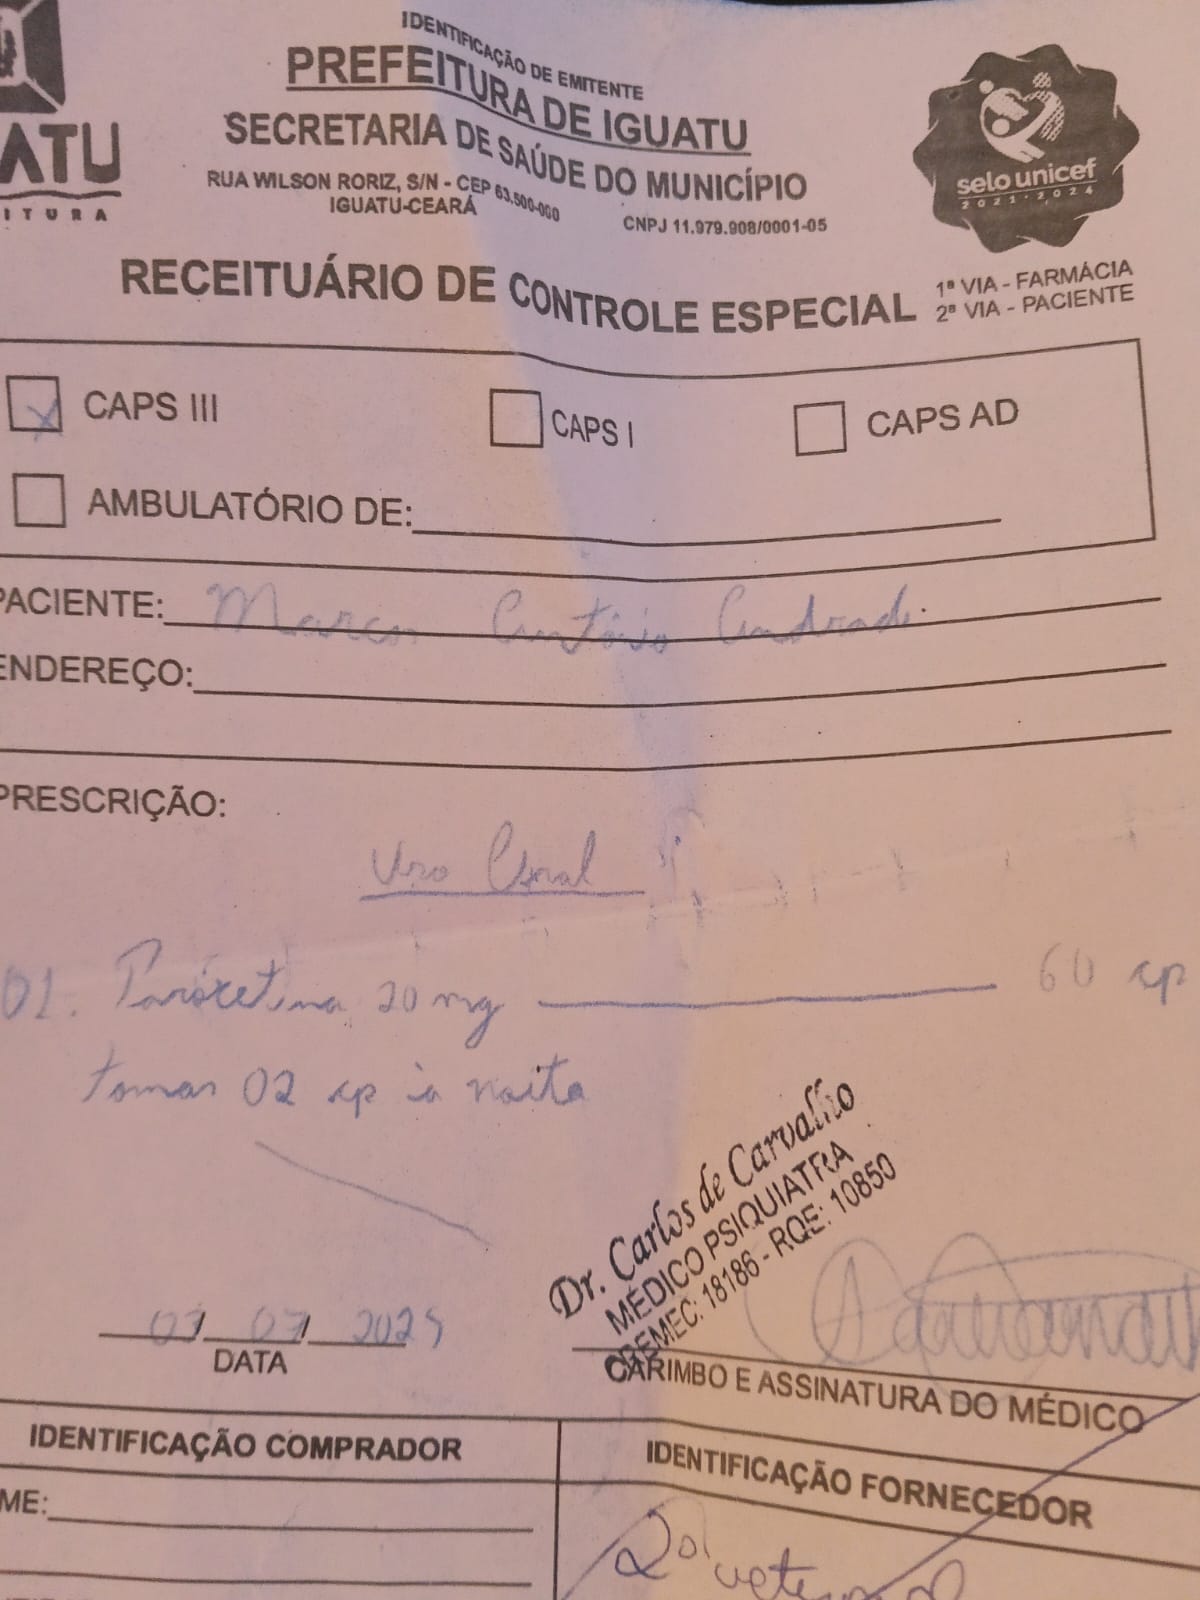 ATU
ITURA
IDENTIFICAÇÃO DE EMITENTE
PREFEITURA DE IGUATU
SECRETARIA DE SAÚDE DO MUNICÍPIO
RUA WILSON RORIZ, S/N - CEP 63.500-000
IGUATU-CEARÁ
CNPJ 11.979.908/0001-05
selo unicef
2021·2024
RECEITUÁRIO DE CONTROLE ESPECIAL
1ª VIA - FARMÁCIA
2ª VIA - PACIENTE
CAPS III CAPS I CAPS AD
AMBULATÓRIO DE:
PACIENTE: Marcos Antônio Andrade
ENDEREÇO:
PRESCRIÇÃO:
Uso Oral
01. Paroxetina 20 mg 60 cp
tomar 02 cp à noite
Dr. Carlos de Carvalho
MÉDICO PSIQUIATRA
CREMEC: 18186 - RQE: 10850
07 2025
DATA
CARIMBO E ASSINATURA DO MÉDICO
IDENTIFICAÇÃO COMPRADOR
IDENTIFICAÇÃO FORNECEDOR
ME: